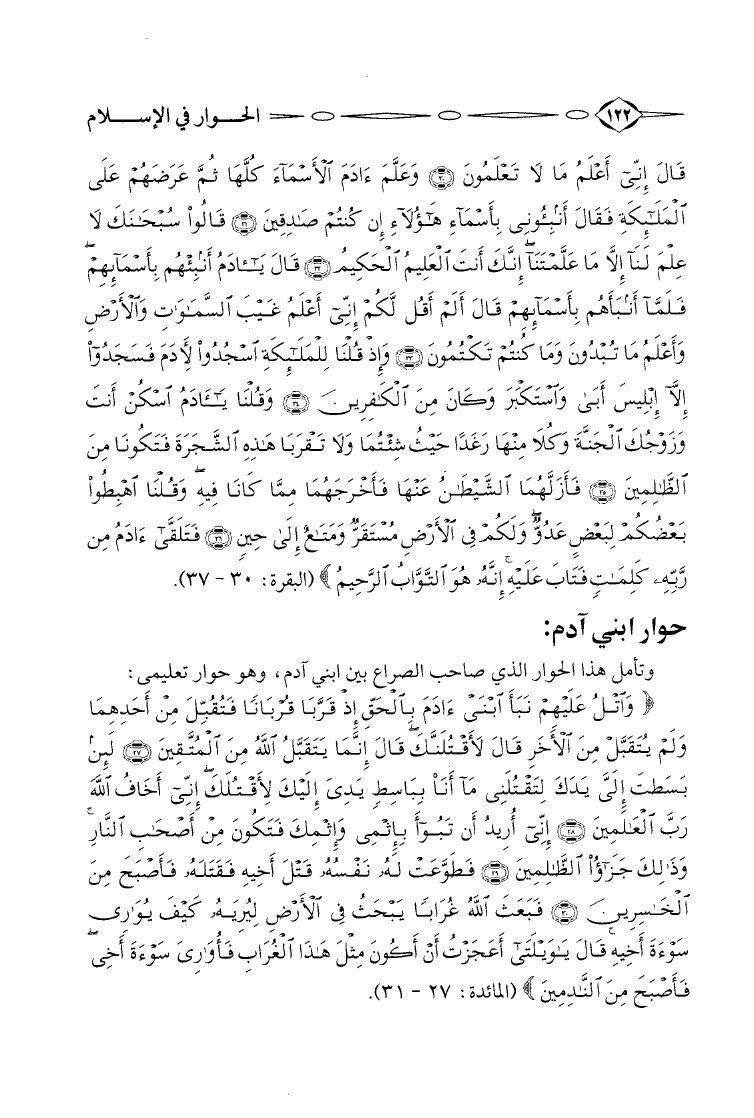 ١٢٢ الحـــوار في الإســـلام
قَالَ إِنِّىٓ أَعْلَمُ مَا لَا تَعْلَمُونَ ﴿٣٠﴾ وَعَلَّمَ ءَادَمَ ٱلْأَسْمَآءَ كُلَّهَا ثُمَّ عَرَضَهُمْ عَلَى
ٱلْمَلَـٰٓئِكَةِ فَقَالَ أَنۢبِـُٔونِى بِأَسْمَآءِ هَـٰٓؤُلَآءِ إِن كُنتُمْ صَـٰدِقِينَ ﴿٣١﴾ قَالُوا۟ سُبْحَـٰنَكَ لَا
عِلْمَ لَنَآ إِلَّا مَا عَلَّمْتَنَآ ۖ إِنَّكَ أَنتَ ٱلْعَلِيمُ ٱلْحَكِيمُ ﴿٣٢﴾ قَالَ يَـٰٓـَٔادَمُ أَنۢبِئْهُم بِأَسْمَآئِهِمْ ۖ
فَلَمَّآ أَنۢبَأَهُم بِأَسْمَآئِهِمْ قَالَ أَلَمْ أَقُل لَّكُمْ إِنِّىٓ أَعْلَمُ غَيْبَ ٱلسَّمَـٰوَٰتِ وَٱلْأَرْضِ
وَأَعْلَمُ مَا تُبْدُونَ وَمَا كُنتُمْ تَكْتُمُونَ ﴿٣٣﴾ وَإِذْ قُلْنَا لِلْمَلَـٰٓئِكَةِ ٱسْجُدُوا۟ لِـَٔادَمَ فَسَجَدُوٓا۟
إِلَّآ إِبْلِيسَ أَبَىٰ وَٱسْتَكْبَرَ وَكَانَ مِنَ ٱلْكَـٰفِرِينَ ﴿٣٤﴾ وَقُلْنَا يَـٰٓـَٔادَمُ ٱسْكُنْ أَنتَ
وَزَوْجُكَ ٱلْجَنَّةَ وَكُلَا مِنْهَا رَغَدًا حَيْثُ شِئْتُمَا وَلَا تَقْرَبَا هَـٰذِهِ ٱلشَّجَرَةَ فَتَكُونَا مِنَ
ٱلظَّـٰلِمِينَ ﴿٣٥﴾ فَأَزَلَّهُمَا ٱلشَّيْطَـٰنُ عَنْهَا فَأَخْرَجَهُمَا مِمَّا كَانَا فِيهِ ۖ وَقُلْنَا ٱهْبِطُوا۟
بَعْضُكُمْ لِبَعْضٍ عَدُوٌّ ۖ وَلَكُمْ فِى ٱلْأَرْضِ مُسْتَقَرٌّ وَمَتَـٰعٌ إِلَىٰ حِينٍ ﴿٣٦﴾ فَتَلَقَّىٰٓ ءَادَمُ مِن
رَّبِّهِۦ كَلِمَـٰتٍ فَتَابَ عَلَيْهِ ۚ إِنَّهُۥ هُوَ ٱلتَّوَّابُ ٱلرَّحِيمُ ﴾ (البقرة: ٣٠ - ٣٧).
حوار ابني آدم:
وتأمل هذا الحوار الذي صاحب الصراع بين ابني آدم، وهو حوار تعليمى:
﴿ وَٱتْلُ عَلَيْهِمْ نَبَأَ ٱبْنَىْ ءَادَمَ بِٱلْحَقِّ إِذْ قَرَّبَا قُرْبَانًا فَتُقُبِّلَ مِنْ أَحَدِهِمَا
وَلَمْ يُتَقَبَّلْ مِنَ ٱلْـَٔاخَرِ قَالَ لَأَقْتُلَنَّكَ ۖ قَالَ إِنَّمَا يَتَقَبَّلُ ٱللَّهُ مِنَ ٱلْمُتَّقِينَ ﴿٢٧﴾ لَئِنۢ
بَسَطتَ إِلَىَّ يَدَكَ لِتَقْتُلَنِى مَآ أَنَا۠ بِبَاسِطٍ يَدِىَ إِلَيْكَ لِأَقْتُلَكَ ۖ إِنِّىٓ أَخَافُ ٱللَّهَ
رَبَّ ٱلْعَـٰلَمِينَ ﴿٢٨﴾ إِنِّىٓ أُرِيدُ أَن تَبُوٓأَ بِإِثْمِى وَإِثْمِكَ فَتَكُونَ مِنْ أَصْحَـٰبِ ٱلنَّارِ ۚ
وَذَٰلِكَ جَزَٰٓؤُا۟ ٱلظَّـٰلِمِينَ ﴿٢٩﴾ فَطَوَّعَتْ لَهُۥ نَفْسُهُۥ قَتْلَ أَخِيهِ فَقَتَلَهُۥ فَأَصْبَحَ مِنَ
ٱلْخَـٰسِرِينَ ﴿٣٠﴾ فَبَعَثَ ٱللَّهُ غُرَابًا يَبْحَثُ فِى ٱلْأَرْضِ لِيُرِيَهُۥ كَيْفَ يُوَٰرِى
سَوْءَةَ أَخِيهِ ۚ قَالَ يَـٰوَيْلَتَىٰٓ أَعَجَزْتُ أَنْ أَكُونَ مِثْلَ هَـٰذَا ٱلْغُرَابِ فَأُوَٰرِىَ سَوْءَةَ أَخِى ۖ
فَأَصْبَحَ مِنَ ٱلنَّـٰدِمِينَ ﴾ (المائدة: ٢٧ - ٣١).